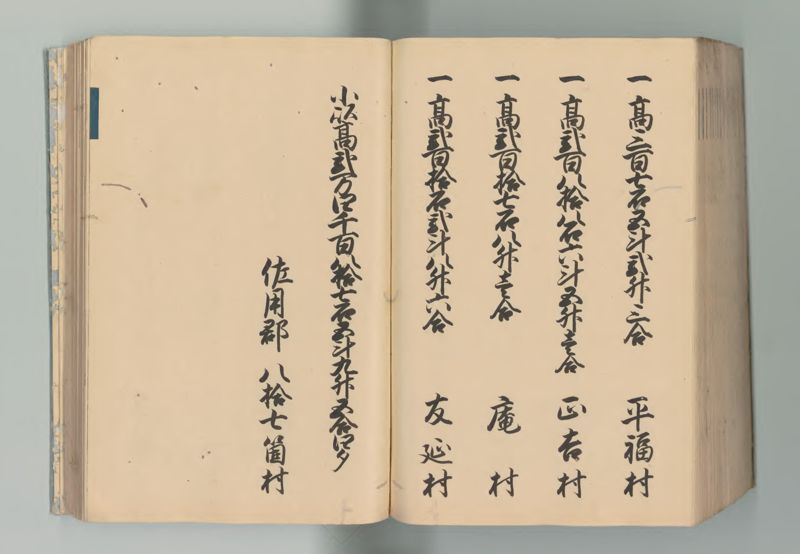 一 高三百七石五斗弐升三合 平福村
一 高弐百八拾八石六斗五升壱合 正吉村
一 高弐百拾七石八升壱合 庵村
一 高弐百拾石弐斗八升六合 友延村
小以高弐万四千百八拾七石五斗九升五合四夕
佐用郡 八拾七箇村